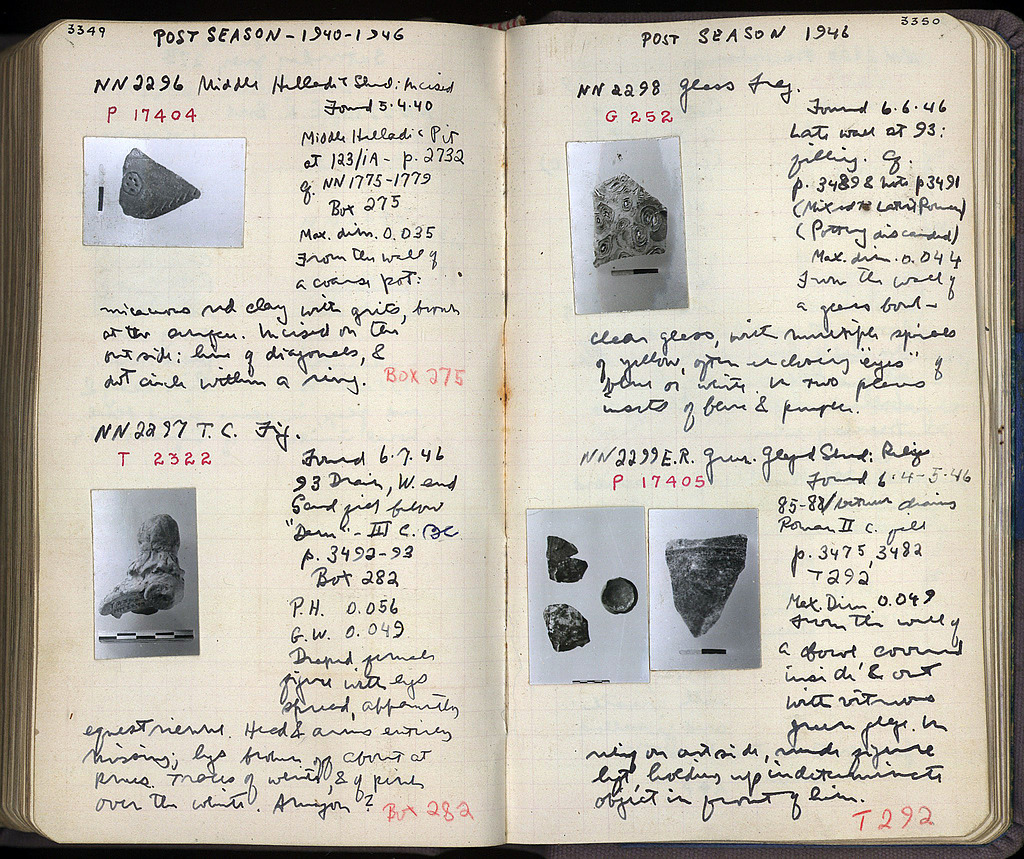 3349
POST SEASON - 1940-1946
NN2296 Middle Helladic Sherd: Incised
P 17404
Found 5.4.40
Middle Helladic Pit
at 123/ΙΑ - p. 2732
cf. NN1775-1779
Box 275
Max. dim. 0.035
From the wall of
a coarse pot:
micaceous red clay with grits, brown
at the surface. Incised on the
outside: line of diagonals, &
dot circle within a ring.
Box 275
NN2297 T.C. Fig.
T 2322
Found 6.7.46
93 Drain, W. end
Sand just below
"Dam" - III C. BC
p. 3492-93
Box 282
P.H. 0.056
G.W. 0.049
Draped female
figure with legs
spread, apparently
equestrienne. Head & arms entirely
missing; legs broken off about at
knees. Traces of white, & of pink
over the white. Amazon?
Box 282
3350
POST SEASON 1946
NN2298 Glass Frag.
G 252
Found 6.6.46
Late wall at 93:
filling. Cf.
p. 3489 & note p3491
(Mixed to Late Roman)
(Pottery discarded)
Max. dim. 0.044
From the wall of
a glass bowl -
clear glass, with multiple spirals
of yellow, often enclosing "eyes" of
blue or white. In two places
insets of blue & purple.
NN2299 E.R. Green Glazed Sherd: Relief
P 17405
Found 6-4-5-46
85-88/ between drains
Roman II C. fill
p. 3475, 3482
T292
Max. Dim. 0.049
From the wall of
a bowl covered
inside & out
with vitreous
green glaze. In
relief on outside, nude figure
left holding up indeterminate
object in front of him.
T292